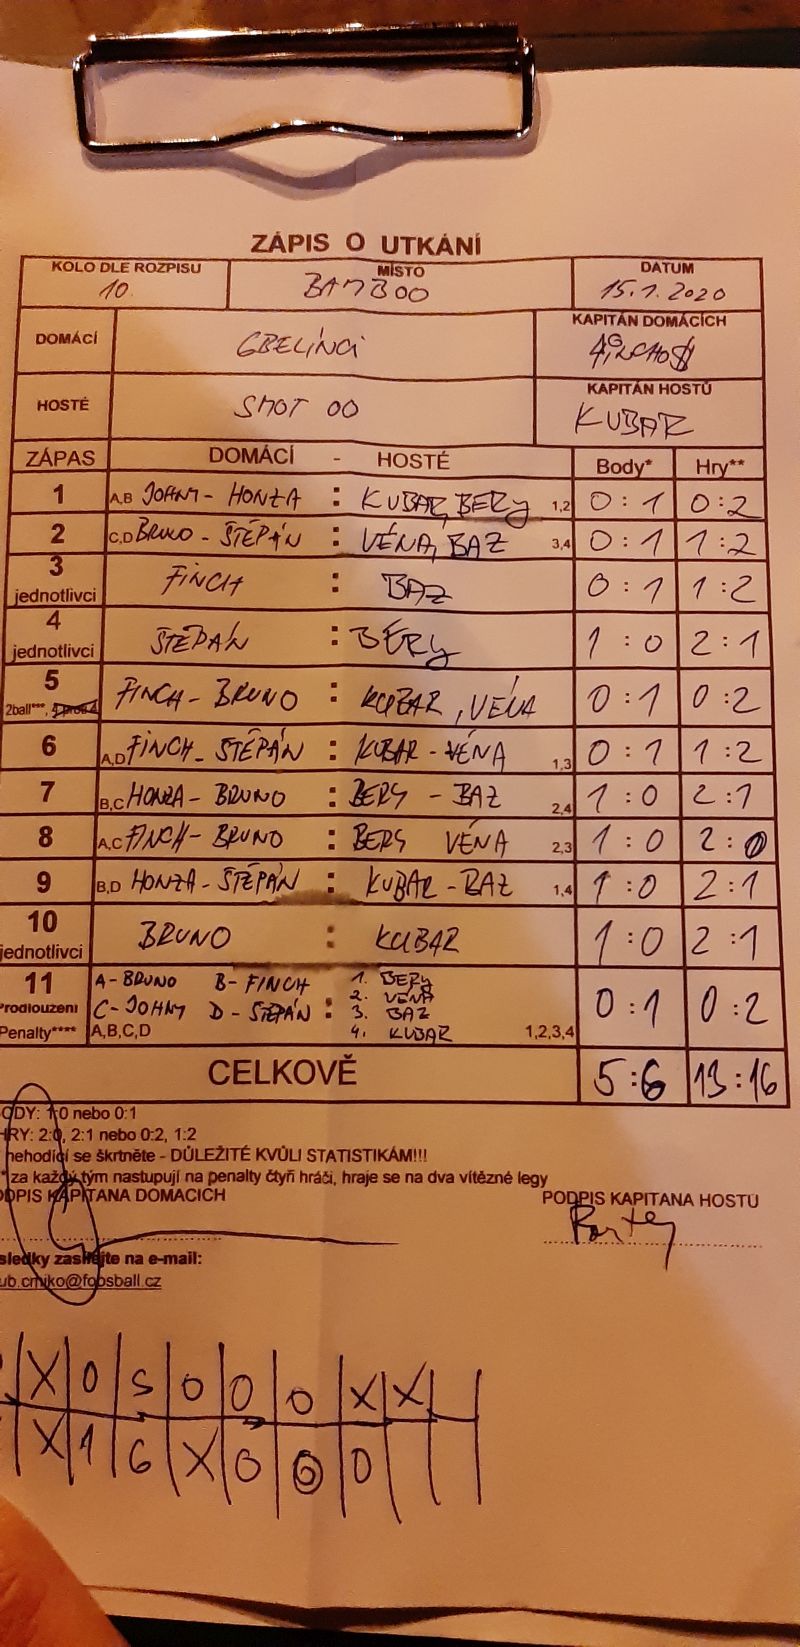 ZÁPIS O UTKÁNÍ
KOLO DLE ROZPISU MÍSTO DATUM
10. BAMBOO 15.1.2020
DOMÁCÍ GBELÍNCI KAPITÁN DOMÁCÍCH
HOSTÉ SMOT OO KAPITÁN HOSTŮ
KUBAR
ZÁPAS DOMÁCÍ - HOSTÉ Body* Hry**
1 A,B JOHNY - HONZA : KUBAR, BERY 1,2 0:1 0:2
2 C,D BRUNO - ŠTĚPÁN : VÉNA, BAZ 3,4 0:1 1:2
3 jednotlivci FINCH : BAZ 0:1 1:2
4 jednotlivci ŠTĚPÁN : BÉRY 1:0 2:1
5 2ball***, FINCH - BRUNO : KUBAR, VÉNA 0:1 0:2
6 A,D FINCH - ŠTĚPÁN : KUBAR - VÉNA 1,3 0:1 1:2
7 B,C HONZA - BRUNO : BERY - BAZ 2,4 1:0 2:1
8 A,C FINCH - BRUNO : BERY VÉNA 2,3 1:0 2:0
9 B,D HONZA - ŠTĚPÁN : KUBAR - BAZ 1,4 1:0 2:1
10 jednotlivci BRUNO : KUBAR 1:0 2:1
11 A - BRUNO B - FINCH 1. BERY
Prodloužení C - JOHNY D - ŠTĚPÁN : 2. VÉNA 3. BAZ 0:1 0:2
Penalty**** A,B,C,D 4. KUBAR 1,2,3,4
CELKOVĚ 5:6 13:16
ODY: 1:0 nebo 0:1
HRY: 2:0, 2:1 nebo 0:2, 1:2
nehodící se škrtněte - DŮLEŽITÉ KVŮLI STATISTIKÁM!!!
* za každý tým nastupují na penalty čtyři hráči, hraje se na dva vítězné legy
ODPIS KAPITANA DOMACICH PODPIS KAPITANA HOSTŮ
sledky zasílejte na e-mail:
ub.cmiko@foosball.cz
X 0 5 0 0 0 X X
X 1 6 X 0 0 0